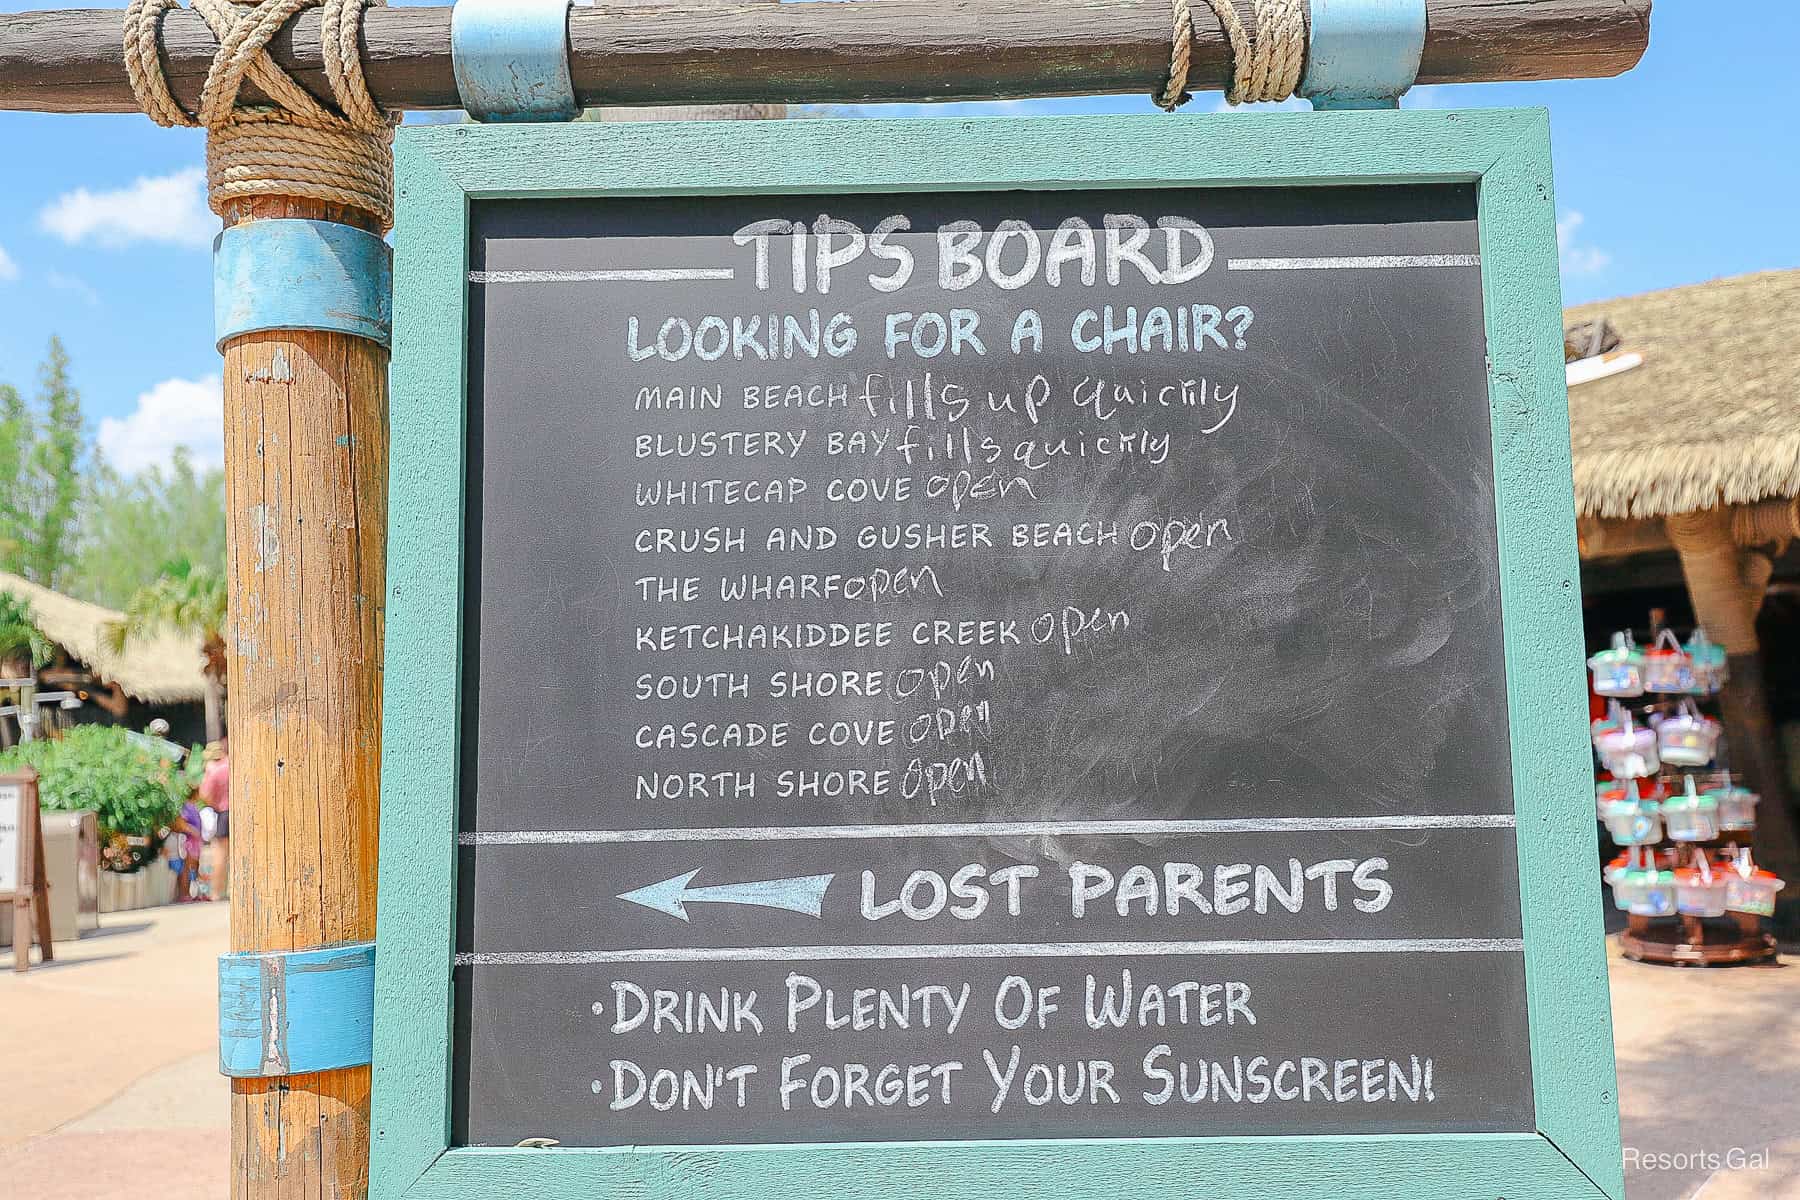 TIPS BOARD
LOOKING FOR A CHAIR?
MAIN BEACH fills up quickly
BLUSTERY BAY fills quickly
WHITECAP COVE open
CRUSH AND GUSHER BEACH open
THE WHARF open
KETCHAKIDDEE CREEK open
SOUTH SHORE open
CASCADE COVE open
NORTH SHORE open
LOST PARENTS
•DRINK PLENTY OF WATER
•DON'T FORGET YOUR SUNSCREEN!
Resorts Gal